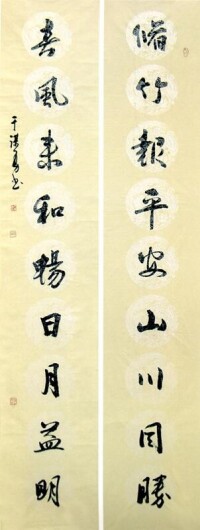 脩竹報平安山川同勝
春風來和暢日月益明